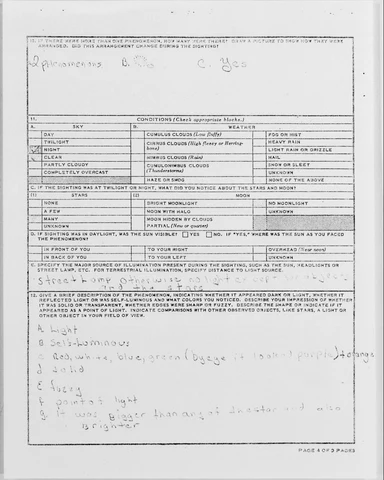 10. IF THERE WERE MORE THAN ONE PHENOMENON, HOW MANY WERE THERE? DRAW A PICTURE TO SHOW HOW THEY WERE
ARRANGED. DID THIS ARRANGEMENT CHANGE DURING THE SIGHTING?
2 phenomenons B. C. Yes
11. CONDITIONS (Check appropriate blocks.)
A. SKY B. WEATHER
DAY CUMULUS CLOUDS (Low fluffy) FOG OR MIST
TWILIGHT CIRRUS CLOUDS (High fleecy or Herring-bone) HEAVY RAIN
NIGHT LIGHT RAIN OR DRIZZLE
CLEAR NIMBUS CLOUDS (Rain) HAIL
PARTLY CLOUDY CUMULONIMBUS CLOUDS (Thunderstorms) SNOW OR SLEET
COMPLETELY OVERCAST UNKNOWN
HAZE OR SMOG NONE OF THE ABOVE
C. IF THE SIGHTING WAS AT TWILIGHT OR NIGHT, WHAT DID YOU NOTICE ABOUT THE STARS AND MOON?
(1) STARS (2) MOON
NONE BRIGHT MOONLIGHT NO MOONLIGHT
A FEW MOON WITH HALO UNKNOWN
MANY MOON HIDDEN BY CLOUDS
UNKNOWN PARTIAL (New or quarter)
D. IF SIGHTING WAS IN DAYLIGHT, WAS THE SUN VISIBLE? YES NO. IF "YES," WHERE WAS THE SUN AS YOU FACED
THE PHENOMENON?
IN FRONT OF YOU TO YOUR RIGHT OVERHEAD (Near noon)
IN BACK OF YOU TO YOUR LEFT UNKNOWN
SPECIFY THE MAJOR SOURCE OF ILLUMINATION PRESENT DURING THE SIGHTING, SUCH AS THE SUN, HEADLIGHTS OR
STREET LAMP, ETC. FOR TERRESTRIAL ILLUMINATION, SPECIFY DISTANCE TO LIGHT SOURCE.
Street lamp otherwise no light
and the stars
GIVE A BRIEF DESCRIPTION OF THE PHENOMENON, INDICATING WHETHER IT APPEARED DARK OR LIGHT, WHETHER IT
REFLECTED LIGHT OR WAS SELF-LUMINOUS AND WHAT COLORS YOU NOTICED. DESCRIBE YOUR IMPRESSION OF WHETHER
IT WAS SOLID OR TRANSPARENT, WHETHER EDGES WERE SHARP OR FUZZY. DESCRIBE THE SHAPE OR INDICATE IF IT
APPEARED AS A POINT OF LIGHT. INDICATE COMPARISONS WITH OTHER OBSERVED OBJECTS, LIKE STARS, A LIGHT OR
OTHER OBJECT IN YOUR FIELD OF VIEW.
A Light
B Self-Luminous
C Red, white, blue, green (By eye it looked purple) + orange
d solid
E fuzzy
F point of light
g It was Bigger than any of the star and also
Brighter
PAGE 4 OF 3 PAGES